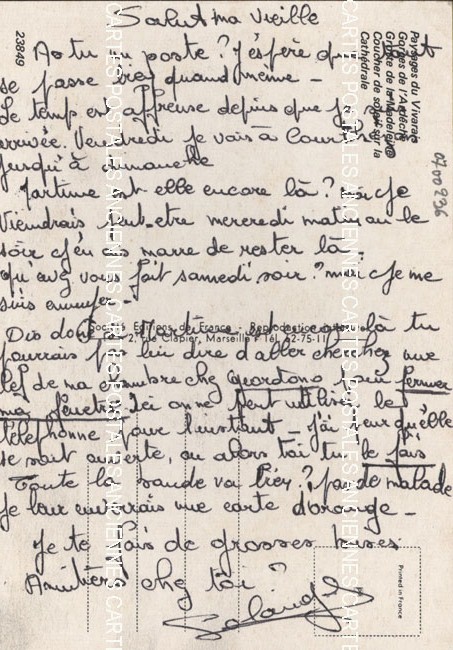 Salut ma vieille
As tu la poste ? J'espère que tout
se passe bien quand même -
Le temps est affreuse depuis que je suis
arrivée. Vendredi je vais à
jusqu'à dimanche
Martine est elle encore là ? moi je
viendrais peut-être mercredi matin ou le
soir j'en ai marre de rester là.
qu'avez vous fait samedi soir ? moi je me
suis ennuyée
Dis donc si Martine est encore là tu
pourrais pas lui dire d'aller chercher une
clef de ma chambre chez pour fermer
ma fenêtre ici on ne peut utiliser le
téléphone pour l'instant - j'ai peur qu'elle
se soit ouverte, ou alors toi tu le fais
Toute la bande va bien ? pas de malade
Je leur enverrais une carte d'orange -
Je te fais de grosses bises
chez toi ?
Solange
23849
Paysages du Vivarais
Gorges de l'Ardèche
Grotte de la Madeleine
Coucher de soleil sur la
Cathédrale
0700936
Editions de France - Reproduction
2, rue Clapier, Marseille - Tél. 62-75-11
Printed in France
CARTES POSTALES ANCIENNES
CARTES POSTALES ANCIENNES